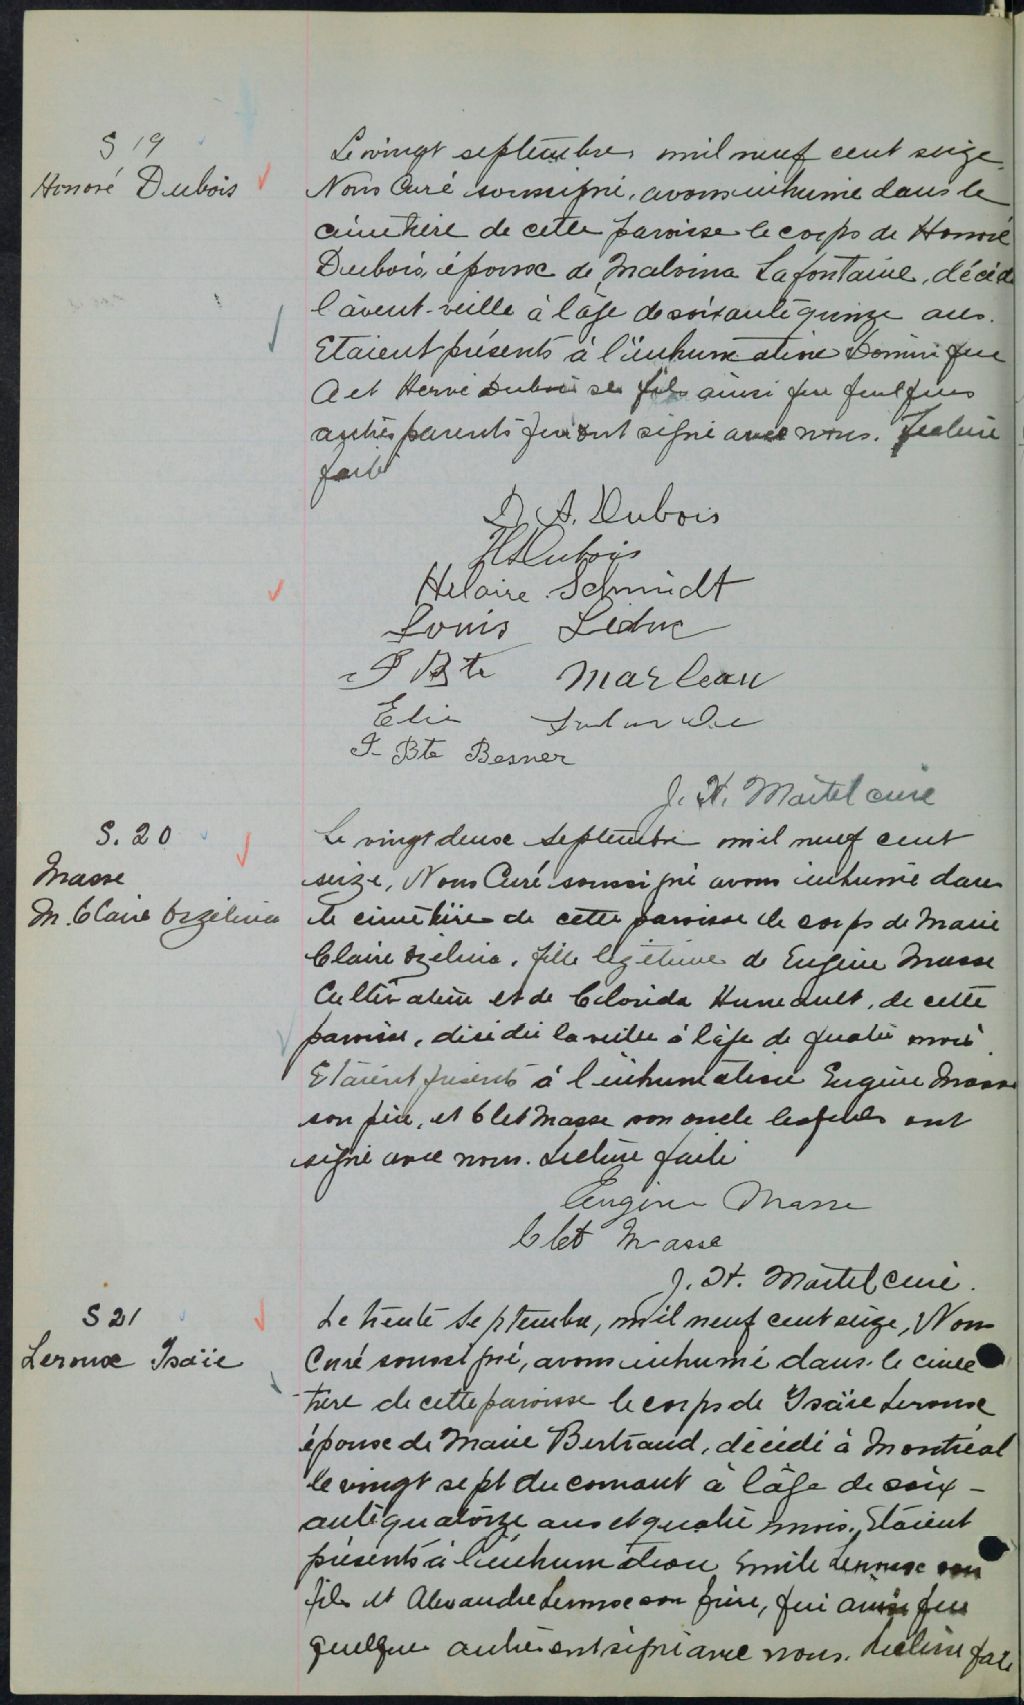 S 19
Honoré Dubois
Le vingt septembre mil neuf cent seize
Nous Curé soussigné, avons inhumé dans le
cimetière de cette paroisse le corps de Honoré
Dubois, époux de Malvina Lafontaine, décédé
l'avent-veille à l'âge de soixante quinze ans.
Etaient présents à l'inhumation Dominique
A et Hervé Dubois ses fils ainsi que quelques
autres parents qui ont signé avec nous. Lecture
faite
D. A. Dubois
H Dubois
Hilaire Schmidt
Louis Leduc
J Bte Marleau
Elie
J- Bte Besner
J. H. Martel curé
S. 20
Masse
M. Claire Ozélina
Le vingt deux septembre mil neuf cent
seize, Nous Curé soussigné avons inhumé dans
le cimetière de cette paroisse le corps de Marie
Claire Ozélina, fille légitime de Eugène Masse
Cultivateur et de Clorida Huneault, de cette
paroisse, décédée la veille à l'âge de quatre mois
Etaient présents à l'inhumation Eugène Masse
son père, et Clet Masse son oncle lesquels ont
signé avec nous. Lecture faite
Eugène Masse
Clet Masse
J. H. Martel curé.
S 21
Leroux Isaïe
Le trente septembre, mil neuf cent seize, Nous
Curé soussigné, avons inhumé dans le cime
tière de cette paroisse le corps de Isaïe Leroux
époux de Marie Bertrand, décédé à Montréal
le vingt sept du courant à l'âge de soix-
ante quatorze ans et quatre mois. Etaient
présents à l'inhumation Emile Leroux son
fils et Alexandre Leroux son frère, qui ainsi que
quelques autres ont signé avec nous. Lecture faite